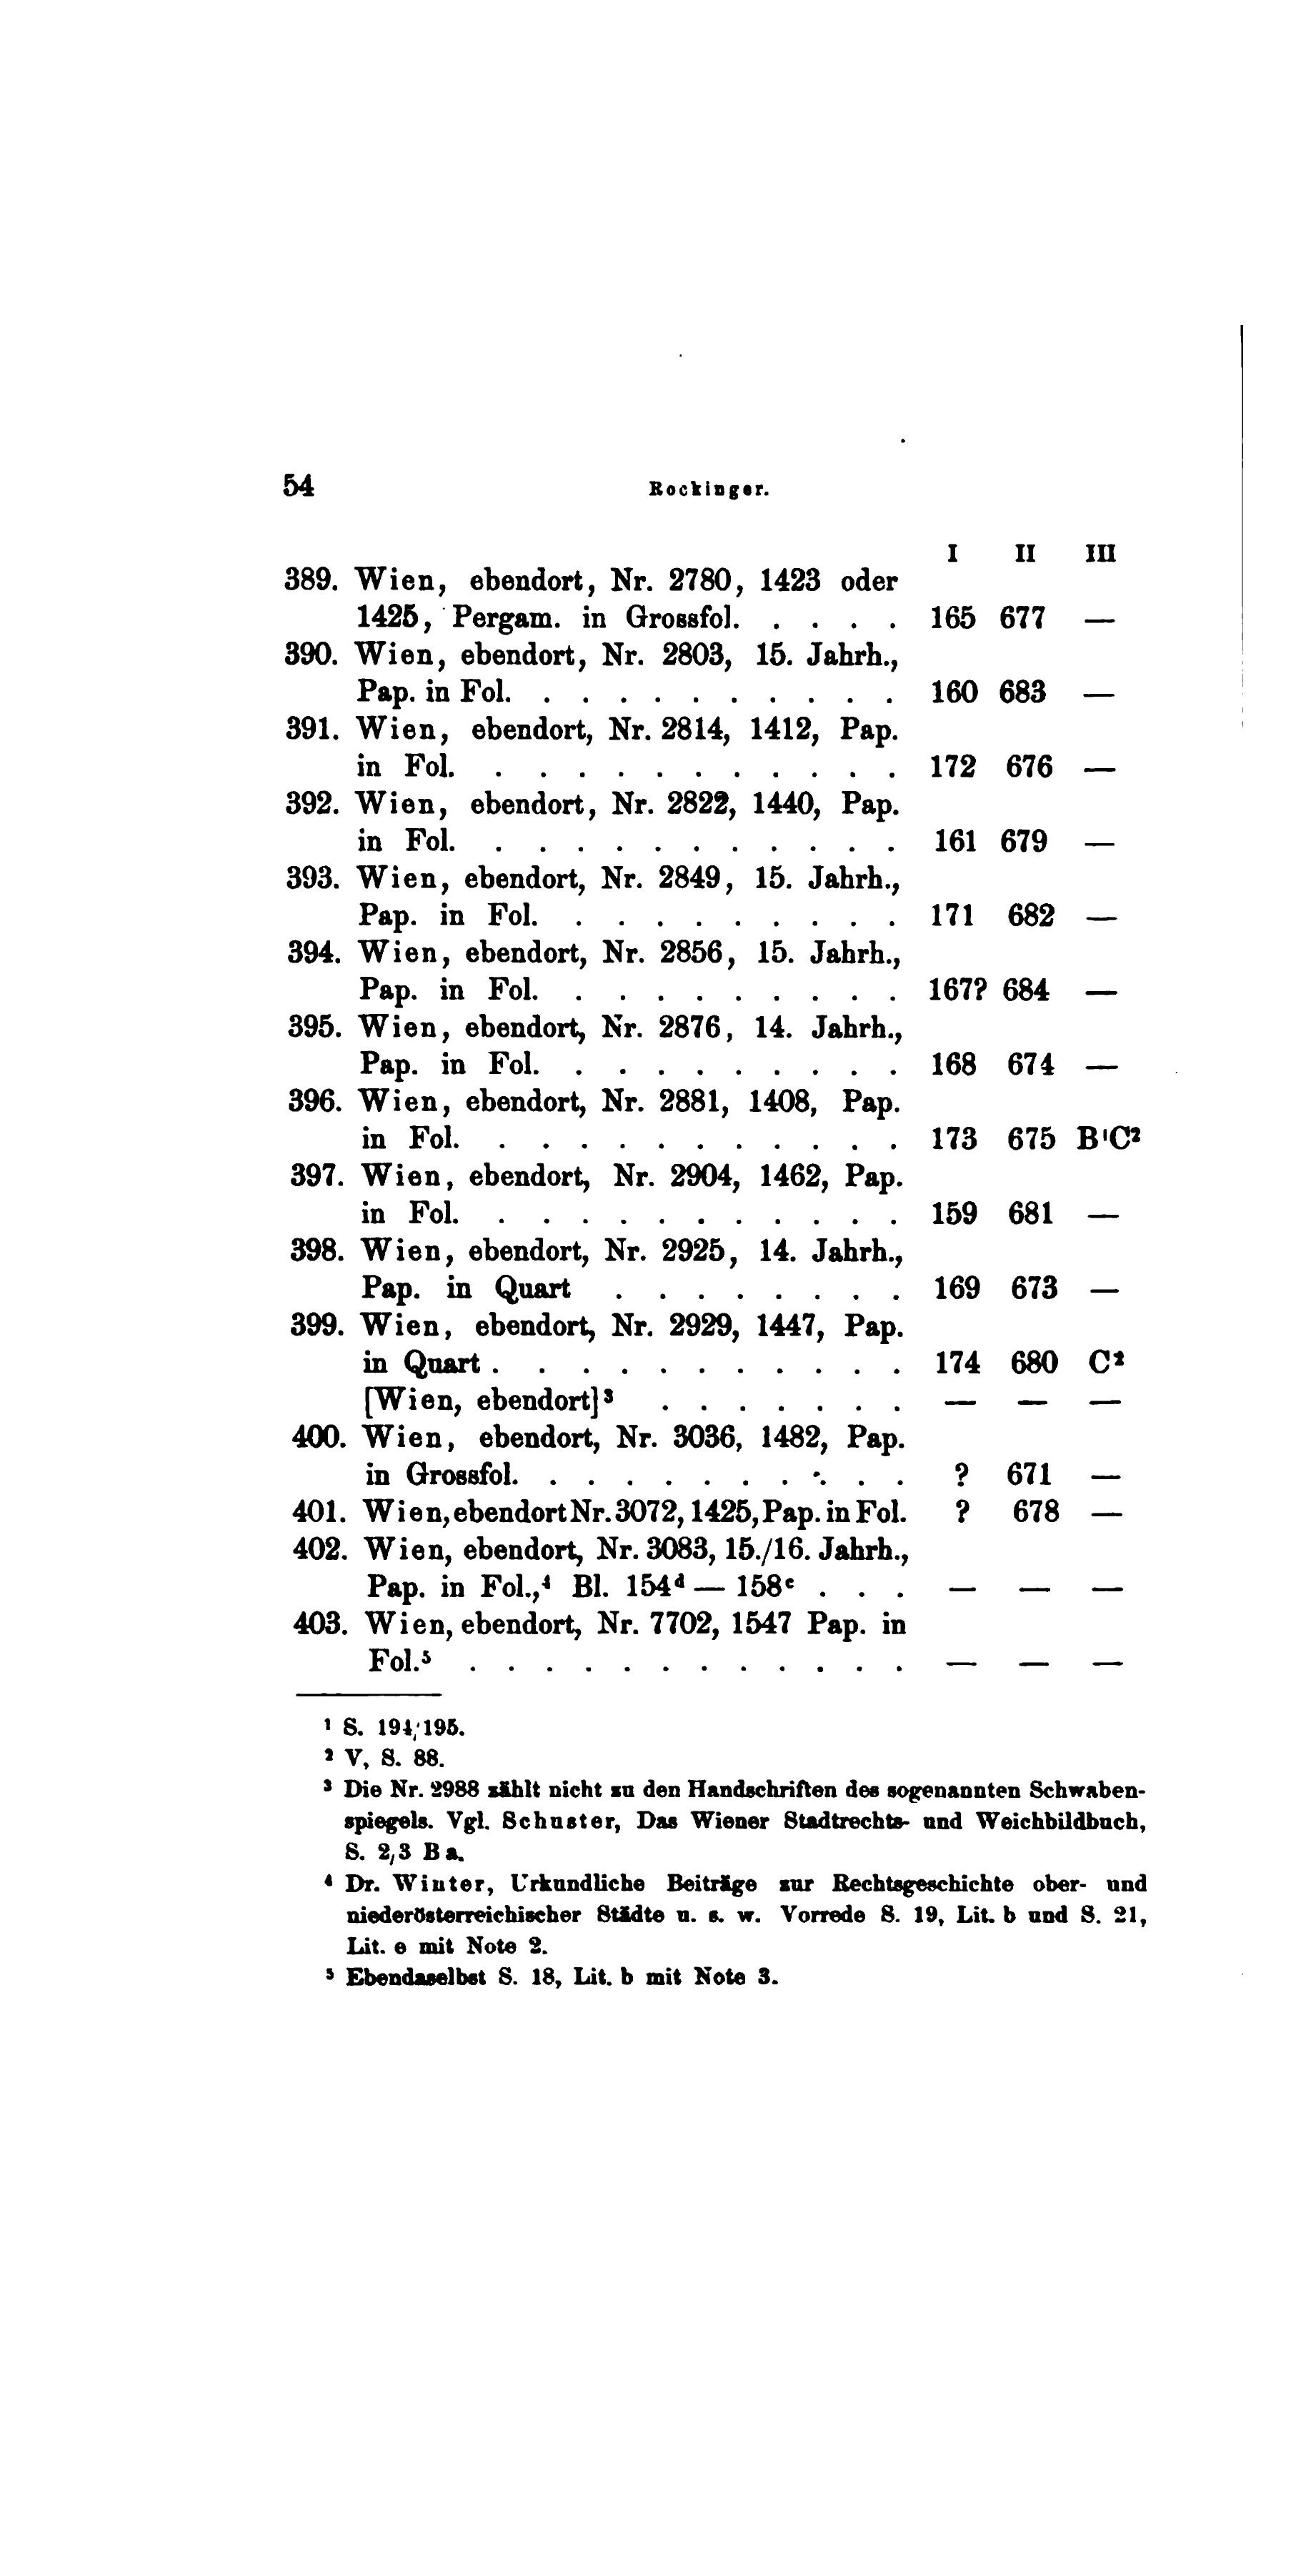 54 Rockinger.
I II III
389. Wien, ebendort, Nr. 2780, 1423 oder
1425, Pergam. in Grossfol. . . . . 165 677 —
390. Wien, ebendort, Nr. 2803, 15. Jahrh.,
Pap. in Fol. . . . . . . . . . . 160 683 —
391. Wien, ebendort, Nr. 2814, 1412, Pap.
in Fol. . . . . . . . . . . . 172 676 —
392. Wien, ebendort, Nr. 2822, 1440, Pap.
in Fol. . . . . . . . . . . . 161 679 —
393. Wien, ebendort, Nr. 2849, 15. Jahrh.,
Pap. in Fol. . . . . . . . . . 171 682 —
394. Wien, ebendort, Nr. 2856, 15. Jahrh.,
Pap. in Fol. . . . . . . . . . 167? 684 —
395. Wien, ebendort, Nr. 2876, 14. Jahrh.,
Pap. in Fol. . . . . . . . . . 168 674 —
396. Wien, ebendort, Nr. 2881, 1408, Pap.
in Fol. . . . . . . . . . . . 173 675 B¹C²
397. Wien, ebendort, Nr. 2904, 1462, Pap.
in Fol. . . . . . . . . . . . 159 681 —
398. Wien, ebendort, Nr. 2925, 14. Jahrh.,
Pap. in Quart . . . . . . . . 169 673 —
399. Wien, ebendort, Nr. 2929, 1447, Pap.
in Quart . . . . . . . . . . . 174 680 C²
[Wien, ebendort]³ . . . . . . . — — —
400. Wien, ebendort, Nr. 3036, 1482, Pap.
in Grossfol. . . . . . . . . . . ? 671 —
401. Wien, ebendort Nr. 3072, 1425, Pap. in Fol. ? 678 —
402. Wien, ebendort, Nr. 3083, 15./16. Jahrh.,
Pap. in Fol.,⁴ Bl. 154ᵈ — 158ᶜ . . . — — —
403. Wien, ebendort, Nr. 7702, 1547 Pap. in
Fol.⁵ . . . . . . . . . . . . — — —
¹ S. 194/195.
² V, S. 88.
³ Die Nr. 2988 zählt nicht zu den Handschriften des sogenannten Schwaben-
spiegels. Vgl. Schuster, Das Wiener Stadtrechts- und Weichbildbuch,
S. 2/3 B a.
⁴ Dr. Winter, Urkundliche Beiträge zur Rechtsgeschichte ober- und
niederösterreichischer Städte u. s. w. Vorrede S. 19, Lit. b und S. 21,
Lit. e mit Note 2.
⁵ Ebendaselbst S. 18, Lit. b mit Note 3.